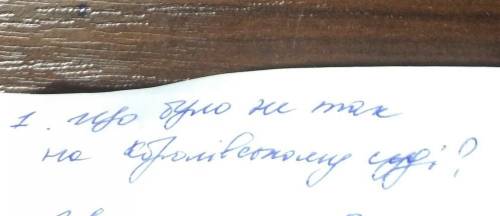 1. Що було не так
на королівському суді?